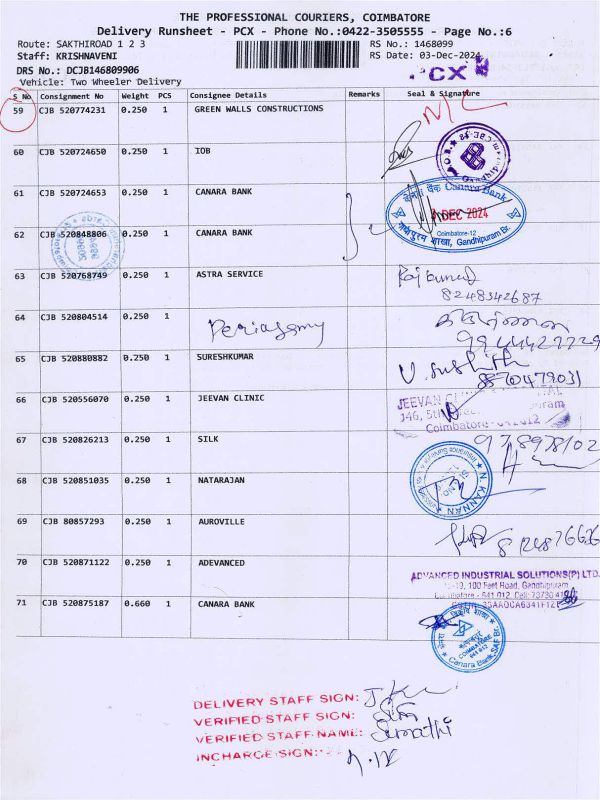 THE PROFESSIONAL COURIERS, COIMBATORE
Delivery Runsheet - PCX - Phone No.:0422-3505555 - Page No.:6
Route: SAKTHIROAD 1 2 3 RS No.: 1468099
Staff: KRISHNAVENI RS Date: 03-Dec-2024
DRS No.: DCJB146809906 PCX
Vehicle: Two Wheeler Delivery
S No Consignment No Weight PCS Consignee Details Remarks Seal & Signature
59 CJB 520774231 0.250 1 GREEN WALLS CONSTRUCTIONS
60 CJB 520724650 0.250 1 IOB
61 CJB 520724653 0.250 1 CANARA BANK
केनरा बैंक Canara Bank
DEC 2024
Coimbatore-12
Gandhipuram Br.
62 CJB 520848806 0.250 1 CANARA BANK
63 CJB 520768749 0.250 1 ASTRA SERVICE
8248342687
64 CJB 520804514 0.250 1 Periasamy
65 CJB 520880882 0.250 1 SURESHKUMAR
8870479031
66 CJB 520556070 0.250 1 JEEVAN CLINIC
JEEVAN
Coimbatore
67 CJB 520826213 0.250 1 SILK
68 CJB 520851035 0.250 1 NATARAJAN
N. KANNAN
69 CJB 80857293 0.250 1 AUROVILLE
70 CJB 520871122 0.250 1 ADEVANCED
ADVANCED INDUSTRIAL SOLUTIONS(P) LTD.
100 Feet Road, Gandhipuram
71 CJB 520875187 0.660 1 CANARA BANK
COIMBATORE
Canara Bank
DELIVERY STAFF SIGN:
VERIFIED STAFF SIGN:
VERIFIED STAFF NAME: Sumathi
INCHARGE SIGN: